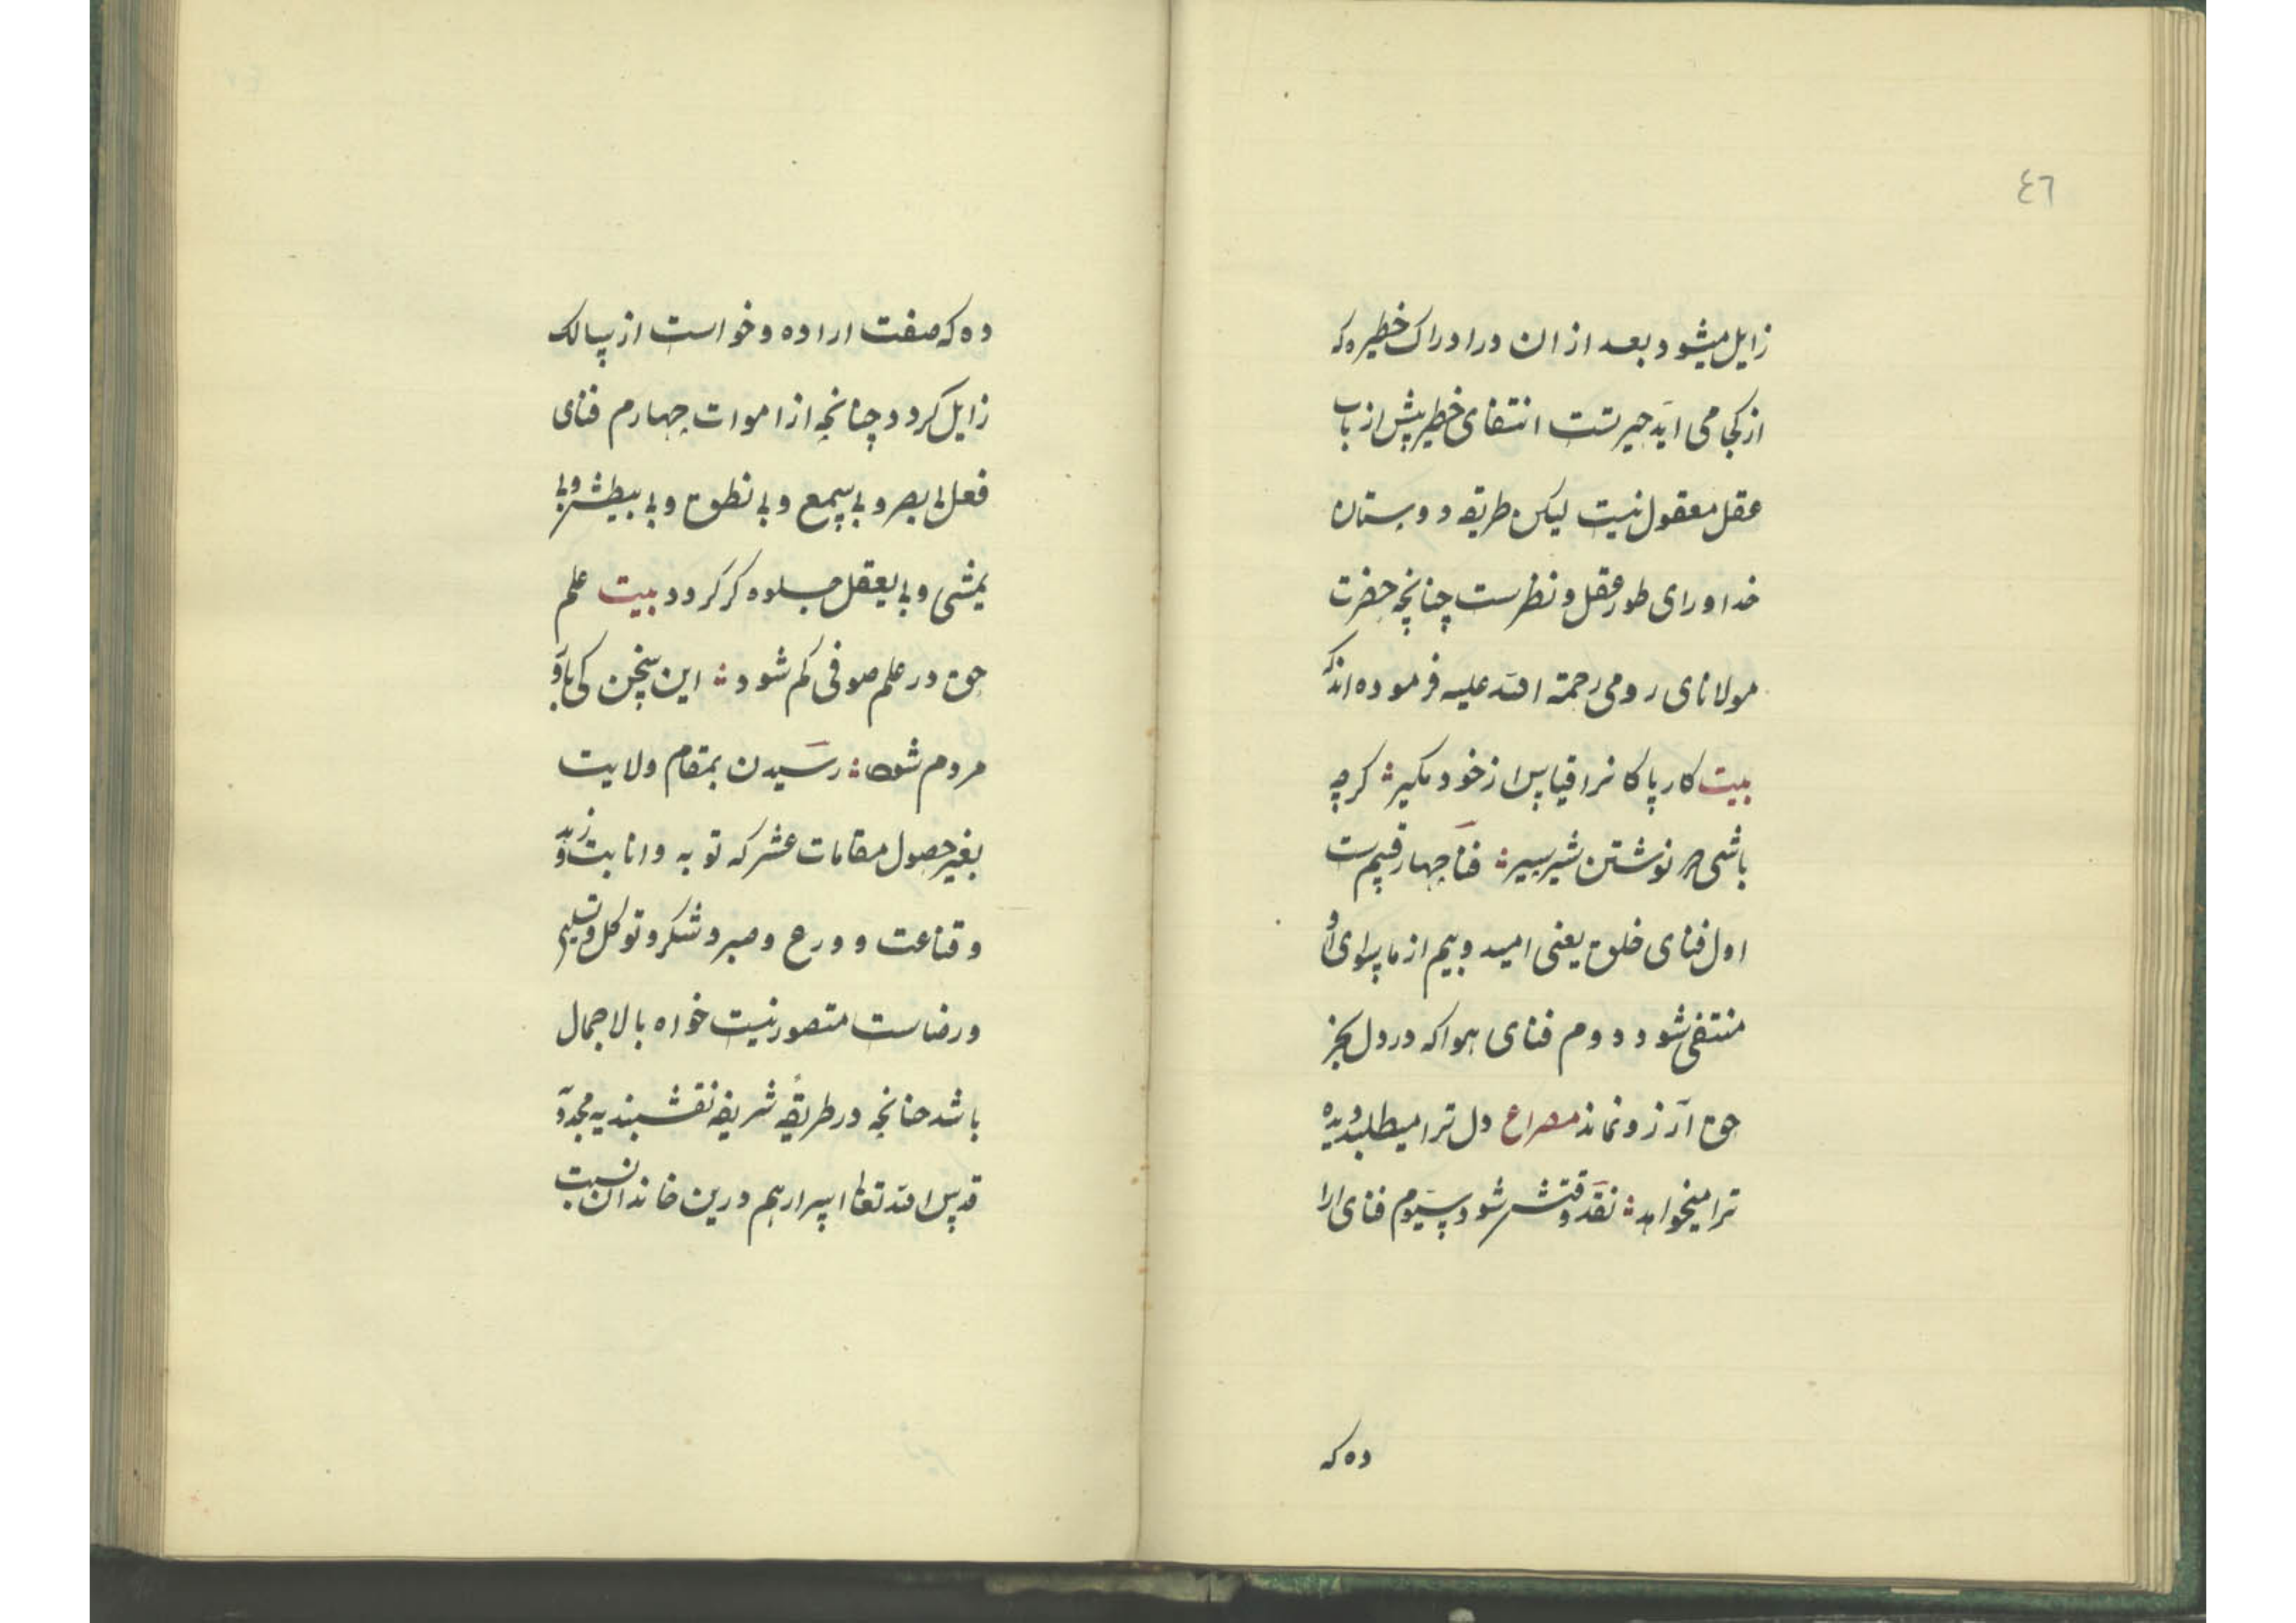 ٤٦
زایل میشود بعد از ان در ادراک خطیره که
از کجا می اید حیرتست انتفای خطیر پیش ارباب
عقل معقول نیست لیکن طریقه دوستان
خدا ورای طور عقل و نظرست چنانچه حضرت
مولانای رومی رحمة الله علیه فرموده اند که
بیت کار پاکانرا قیاس از خود مکیر ؞ کرچه
باشی در نوشتن شیر سیر ؞ فنا چهار قسم ست
اول فنای خلق یعنی امید و بیم از ماسوای او
منتفی شود دوم فنای هوا که در دل بجز
حق آرزو نماند مصراع دل ترا میطلبد دیده
ترا میخواهد ؞ نقد وقتش شود سیوم فنای ارا
ده که
ده که صفت اراده و خواست از سالک
زایل کردد چنانچه از اموات چهارم فنای
فعل بی یبصر و بی یسمع و بی ینطق و بی یبطش و بی
یمشی و بی یعقل جلوه کر کردد بیت علم
حق در علم صوفی کم شود ؞ این سخن کی باور
مردم شود ؞ رسیدن بمقام ولایت
بغیر حصول مقامات عشر که توبه و انابت و زهد
و قناعت و ورع و صبر و شکر و توکل و تسلیم
و رضاست متصور نیست خواه بالاجمال
باشد چنانچه در طریقۀ شریفه نقشبندیه مجدد
قدس الله تعالی اسرارهم درین خاندان نسبت